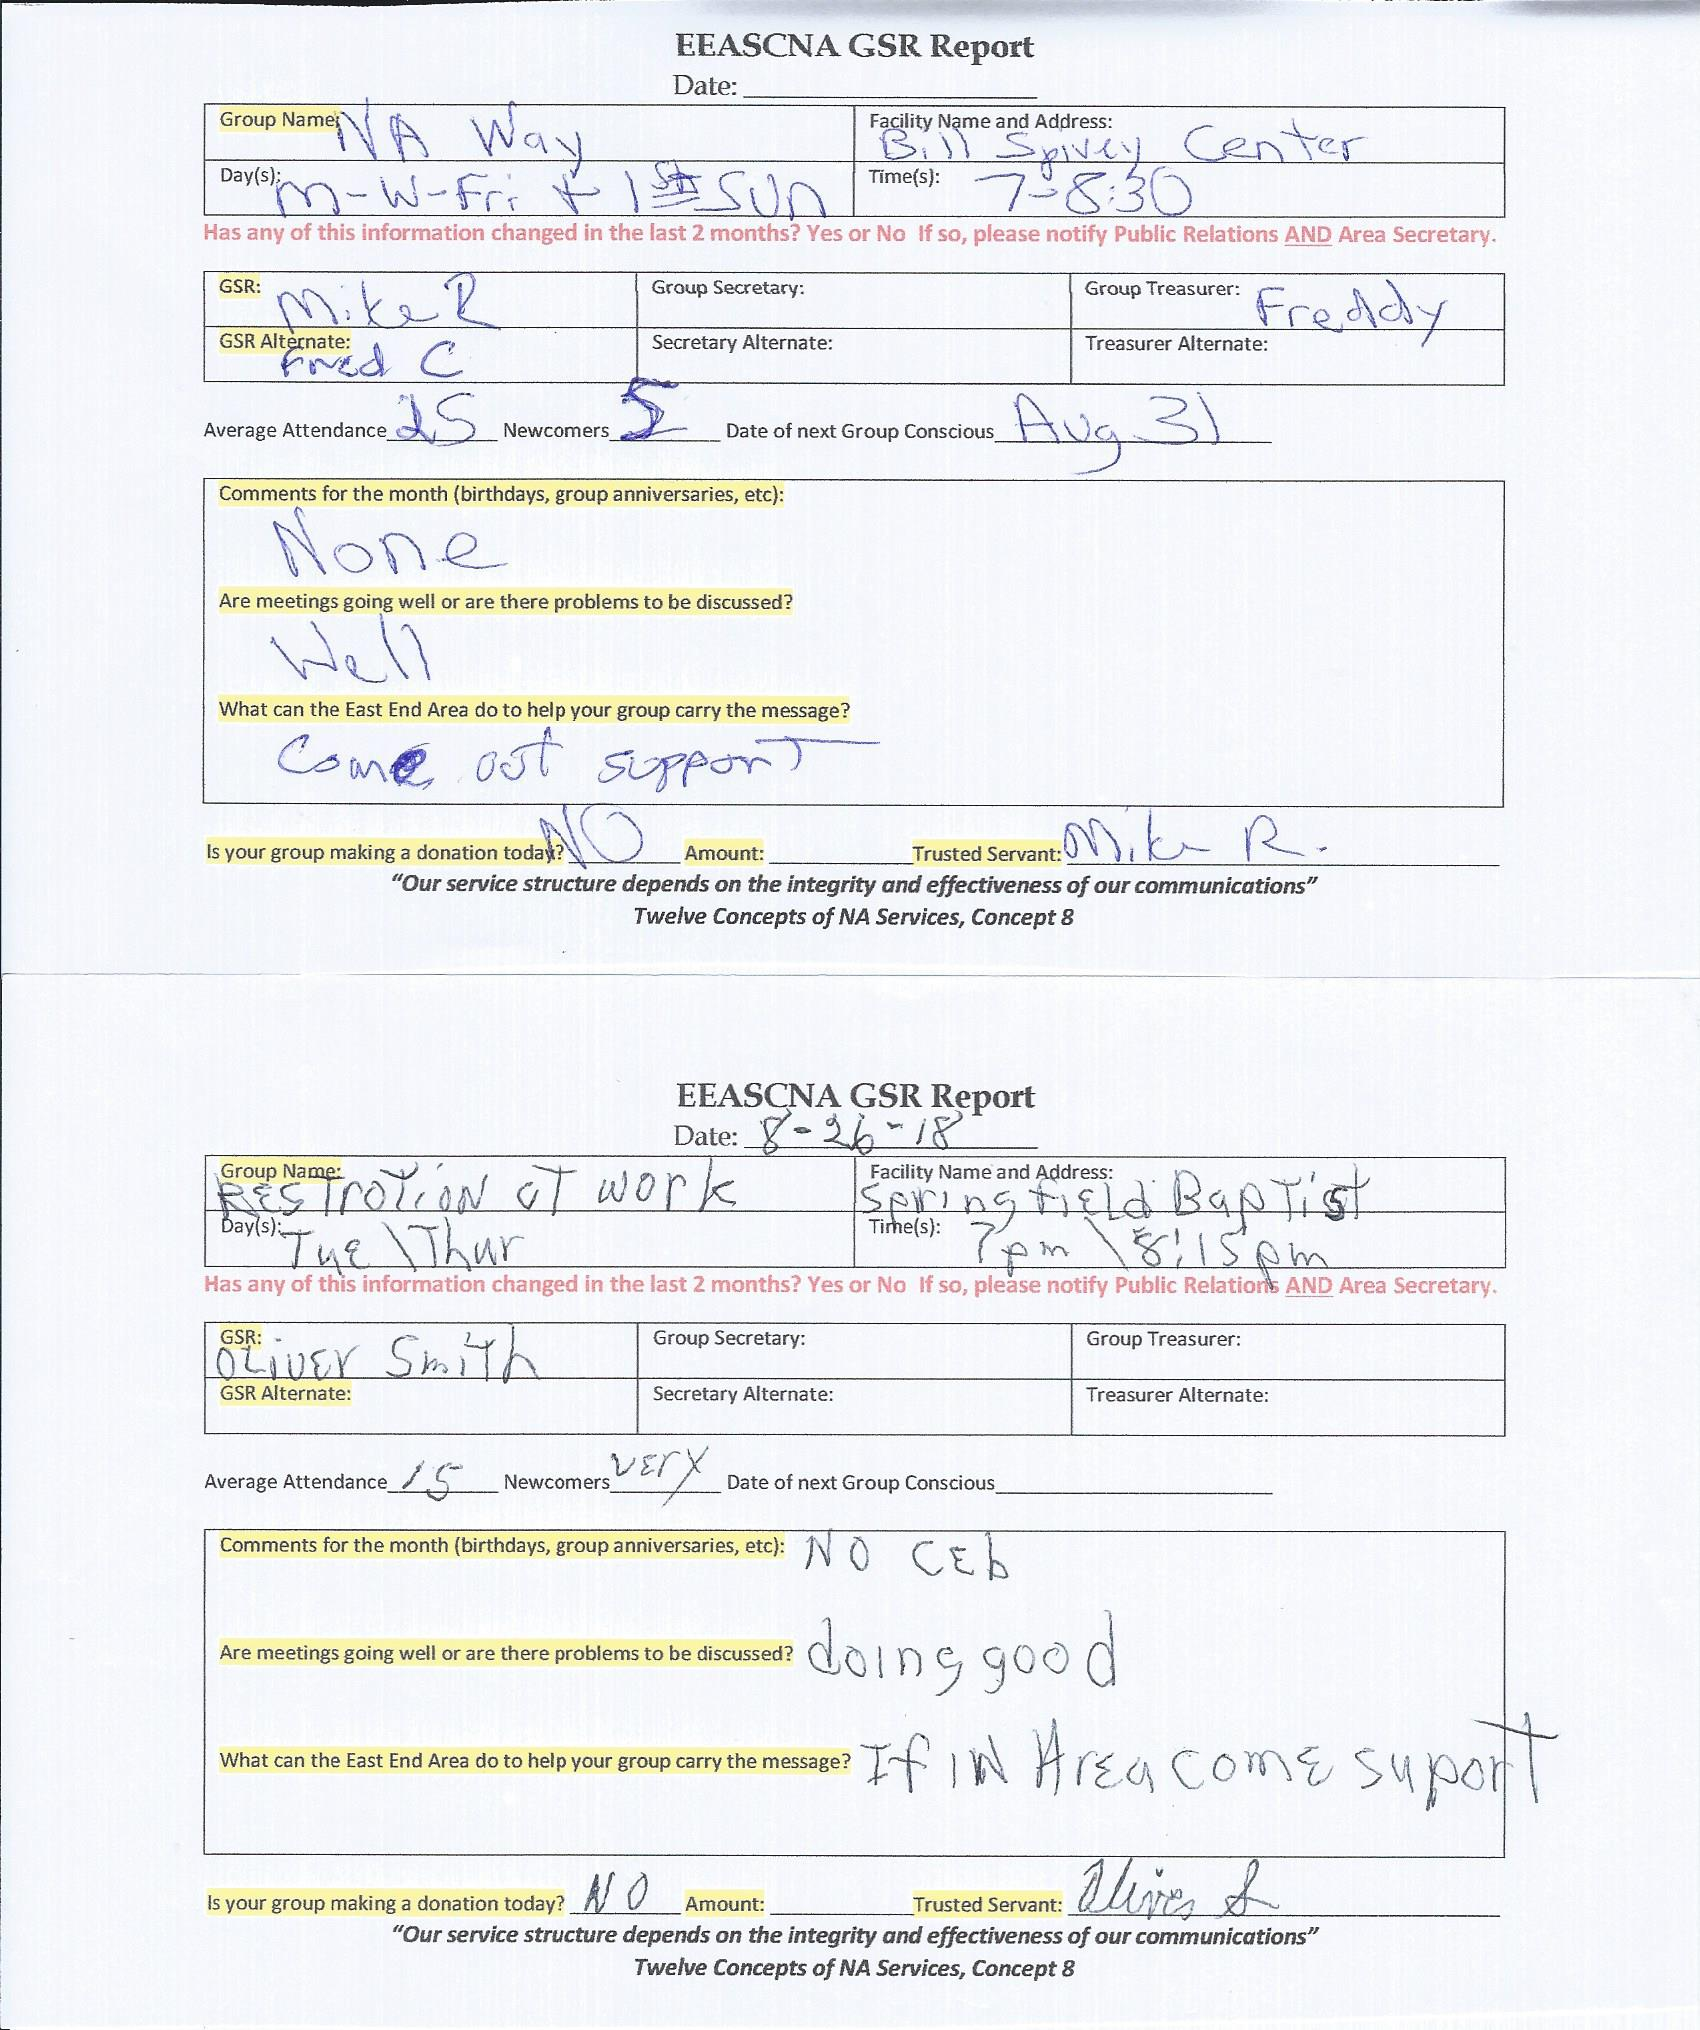 EEASCNA GSR Report
Date:
Group Name: NA Way Facility Name and Address: Bill Spivey Center
Day(s): M-W-Fri + 1st SUN Time(s): 7-8:30
Has any of this information changed in the last 2 months? Yes or No If so, please notify Public Relations AND Area Secretary.
GSR: Mike R Group Secretary: Group Treasurer: Freddy
GSR Alternate: Fred C Secretary Alternate: Treasurer Alternate:
Average Attendance 25 Newcomers 5 Date of next Group Conscious Aug 31
Comments for the month (birthdays, group anniversaries, etc):
None
Are meetings going well or are there problems to be discussed?
Well
What can the East End Area do to help your group carry the message?
Come out support
Is your group making a donation today? NO Amount: Trusted Servant: Mike R.
"Our service structure depends on the integrity and effectiveness of our communications"
Twelve Concepts of NA Services, Concept 8
EEASCNA GSR Report
Date: 8-26-18
Group Name: RESTroTioN aT work Facility Name and Address: Springfield Baptist
Day(s): Tue \ Thur Time(s): 7pm \ 8:15pm
Has any of this information changed in the last 2 months? Yes or No If so, please notify Public Relations AND Area Secretary.
GSR: Oliver Smith Group Secretary: Group Treasurer:
GSR Alternate: Secretary Alternate: Treasurer Alternate:
Average Attendance 15 Newcomers very Date of next Group Conscious
Comments for the month (birthdays, group anniversaries, etc): NO CEb
Are meetings going well or are there problems to be discussed? doing good
What can the East End Area do to help your group carry the message? If IN Area come suport
Is your group making a donation today? NO Amount: Trusted Servant: Oliver S
"Our service structure depends on the integrity and effectiveness of our communications"
Twelve Concepts of NA Services, Concept 8